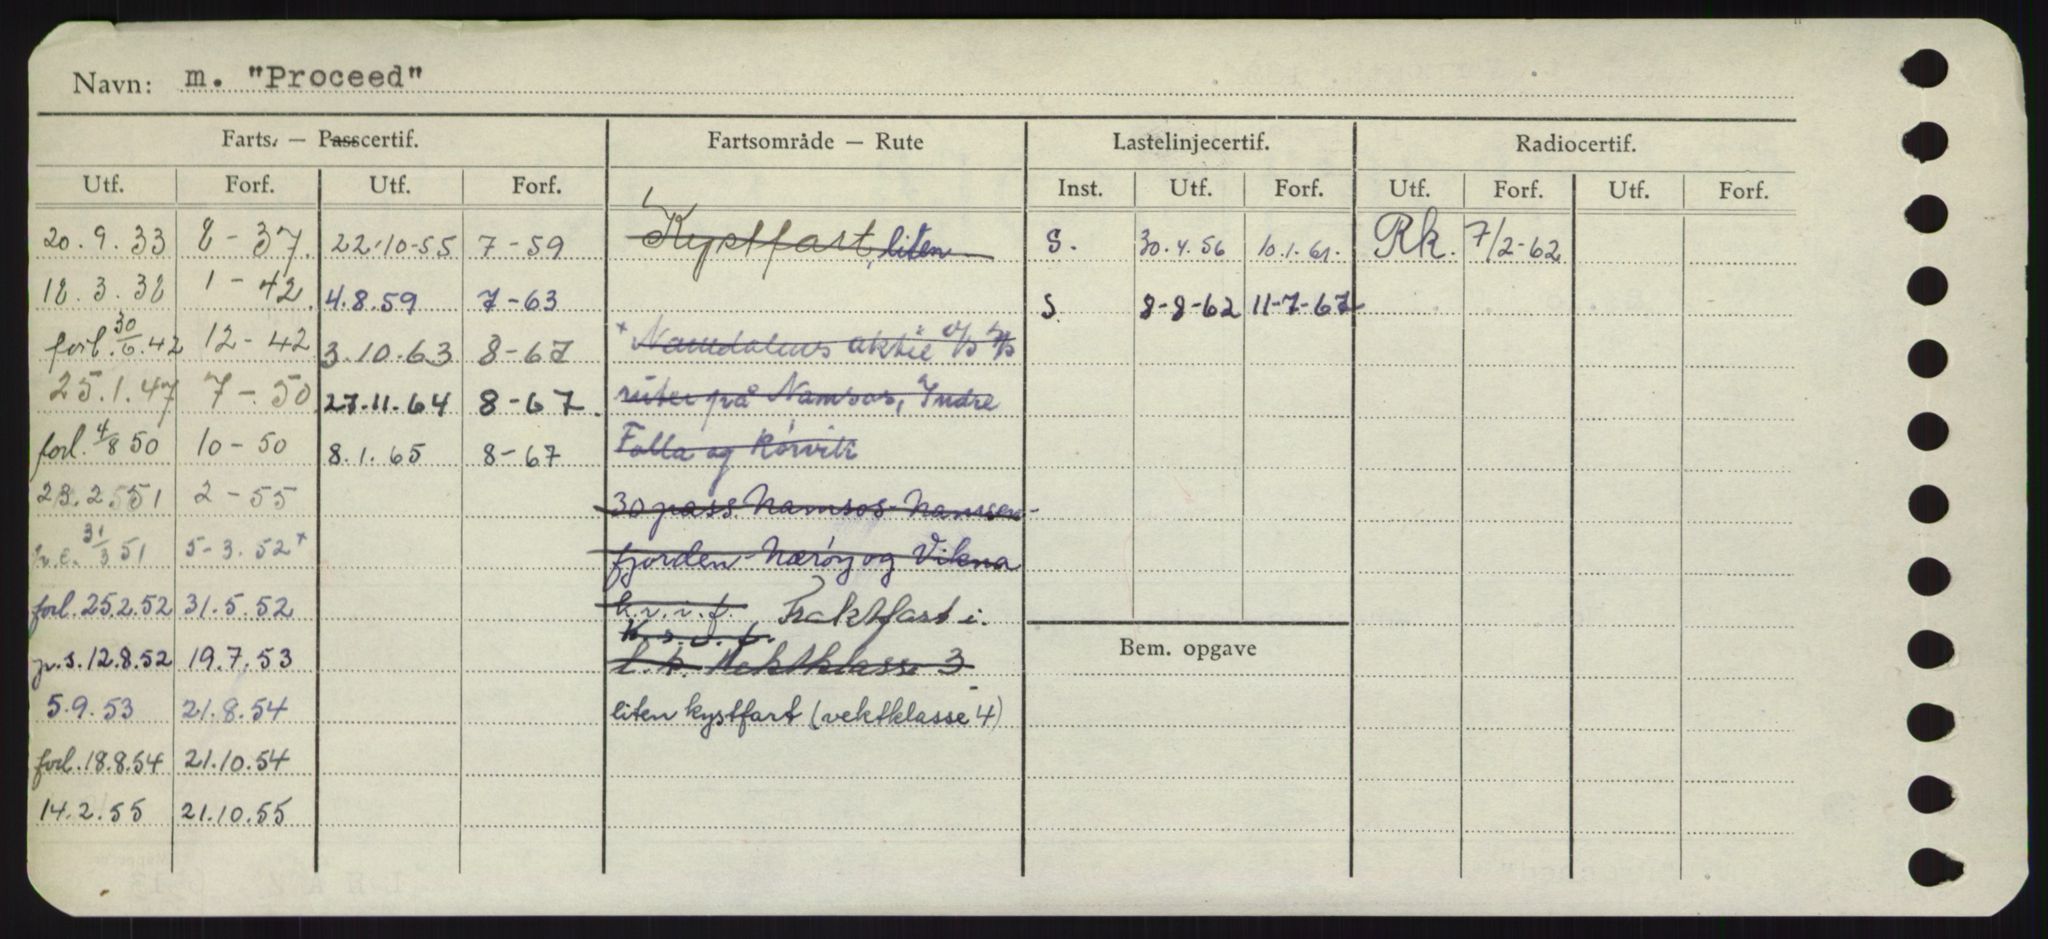 Navn: m. "Proceed"
Farts. — Passcertif. Fartsområde — Rute Lastelinjecertif. Radiocertif.
Utf. Forf. Utf. Forf. Inst. Utf. Forf. Utf. Forf. Utf. Forf.
20.9.33 8-37. 22-10-55 7-59 Kystfart, liten S. 30.4.56 10.1.61. Rk. 7/2-62
18.3.38 1-42 4.8.59 7-63 S 8-8-62 11-7-67
forl. 30/6.42 12-42 3.10.63 8-67 * Namdalens aktie
25.1.47 7-50 27.11.64 8-67. ruter på Namsos, Indre
forl. 4/8 50 10-50 8.1.65 8-67 Folla og Rørvik
23.2.51 2-55 30 pass Namsos-Namsen-
31/3 51 5-3.52* fjorden-Nærøy og Vikna
forl. 25.2.52 31.5.52 Fraktfart i.
K.s.o.f.
p.s. 12.8.52 19.7.53 Vektklasse 3
5.9.53 21.8.54 liten kystfart (vektklasse 4)
forl. 18.8.54 21.10.54
14.2.55 21.10.55
Bem. opgave